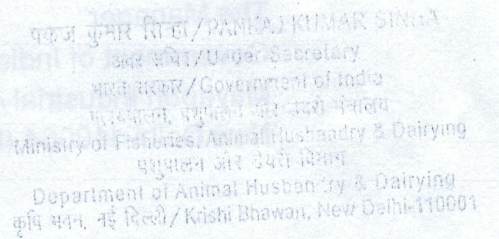 पंकज कुमार सिन्हा/PANKAJ KUMAR SINHA
अवर सचिव/Under Secretary
भारत सरकार/Government of India
मत्स्यपालन, पशुपालन और डेयरी मंत्रालय
Ministry of Fisheries, Animal Husbandry & Dairying
पशुपालन और डेयरी विभाग
Department of Animal Husbandry & Dairying
कृषि भवन, नई दिल्ली/Krishi Bhawan, New Delhi-110001